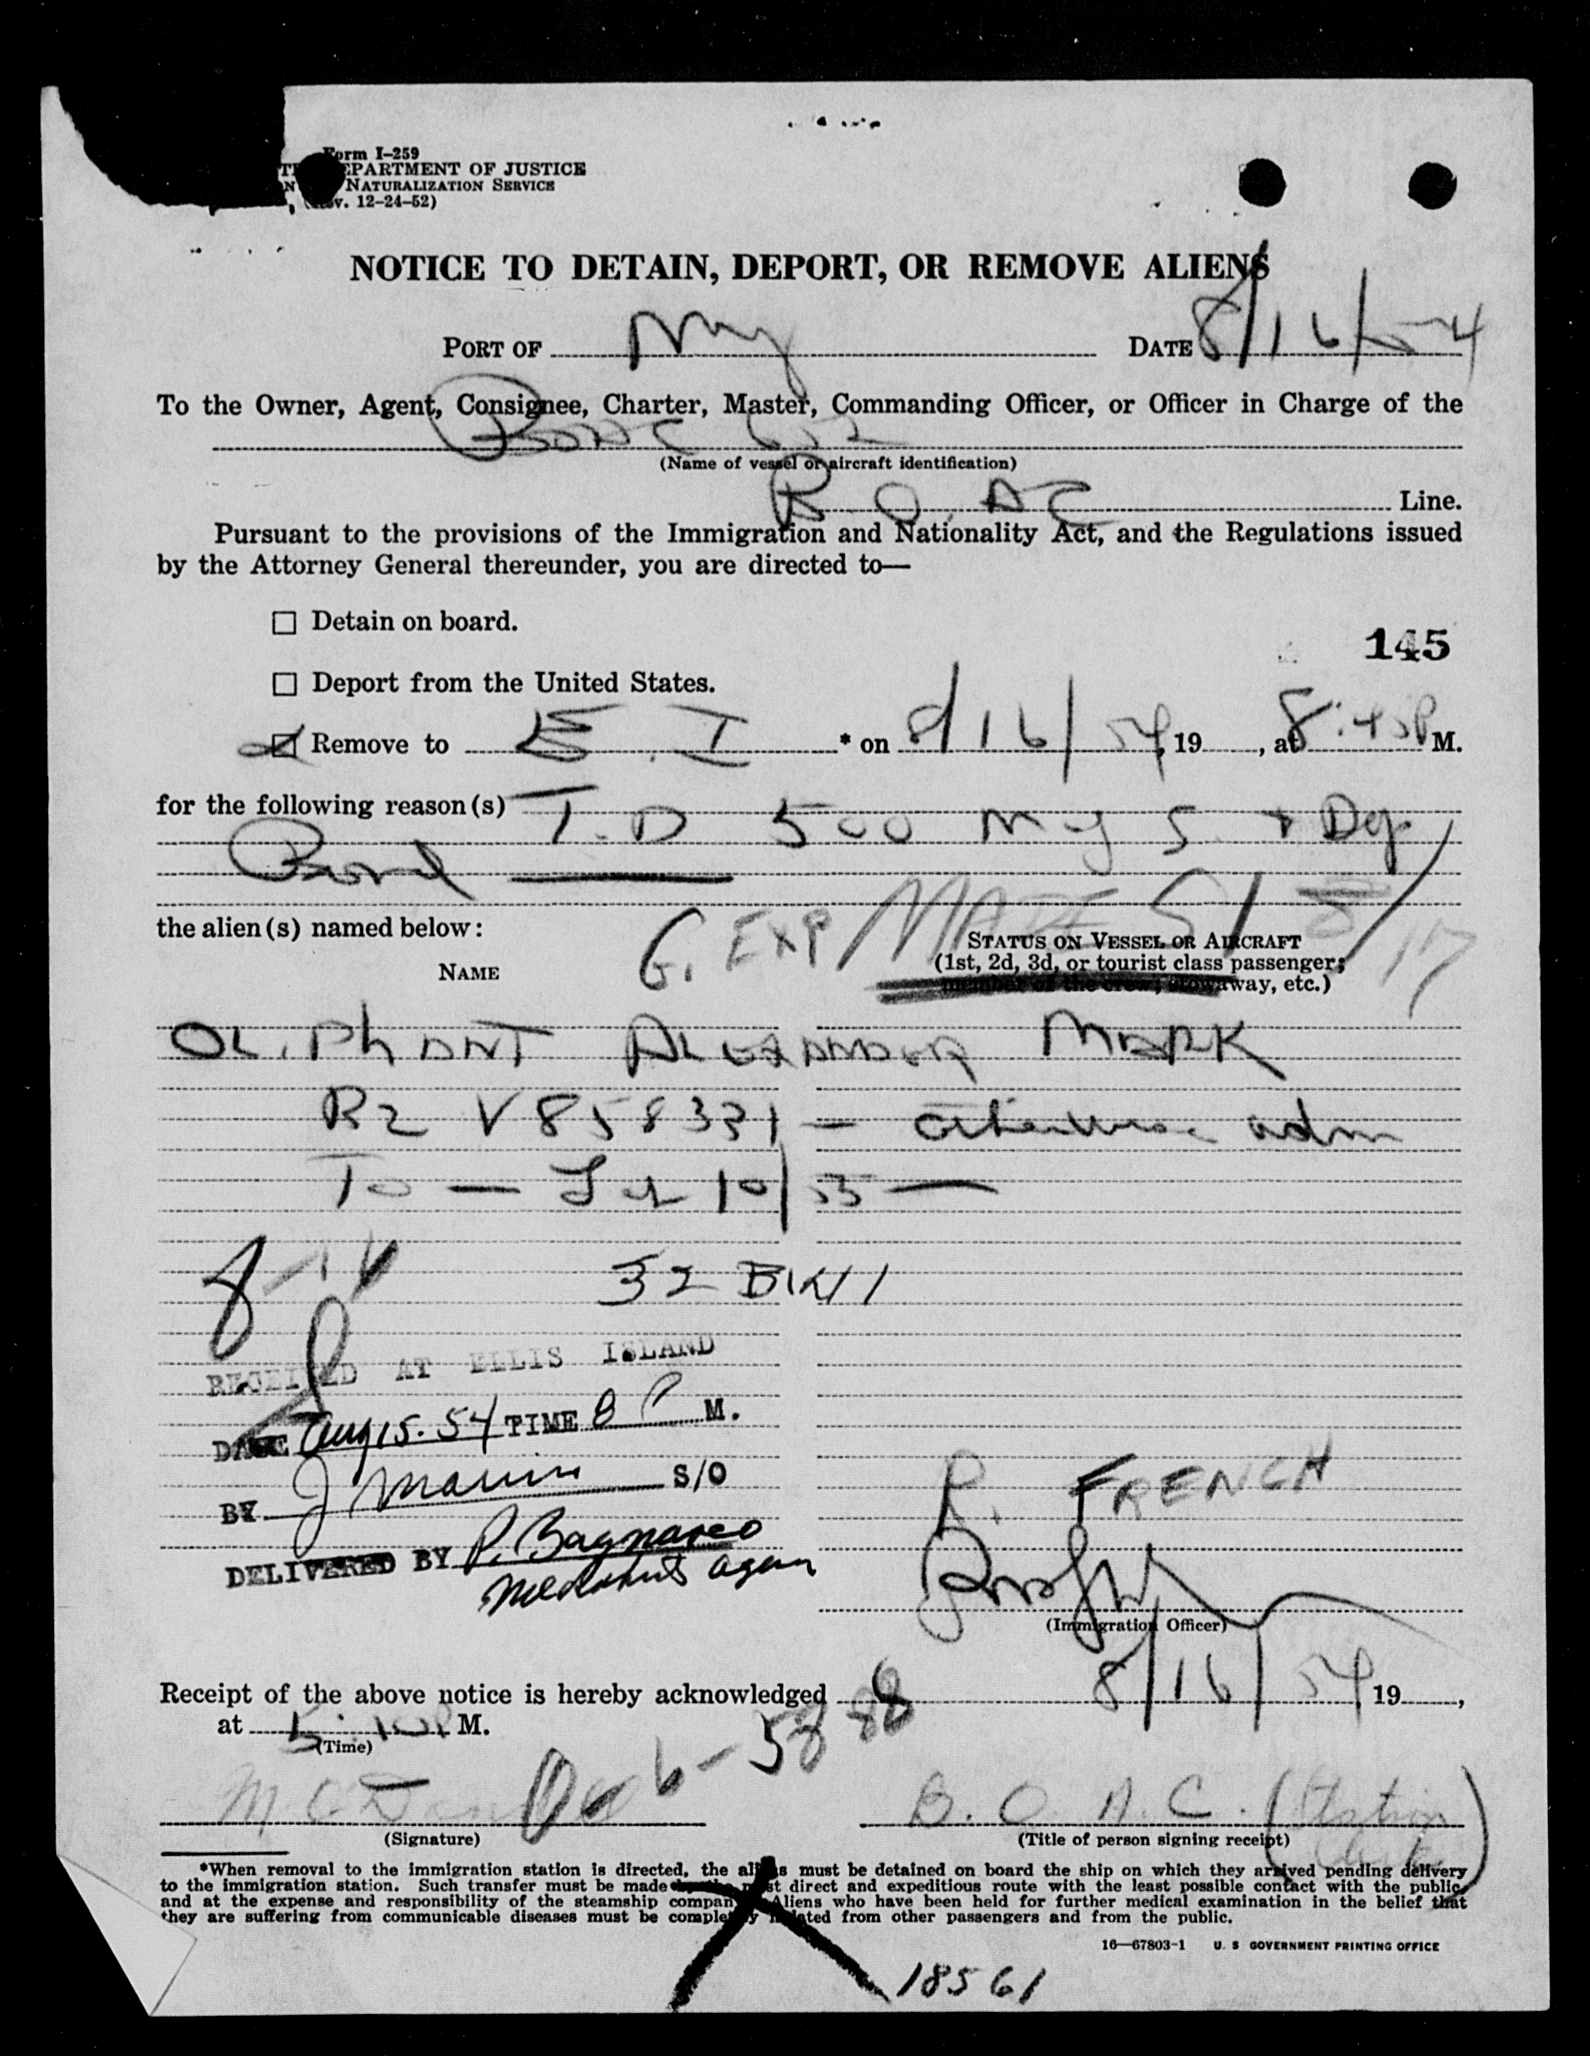 Form I-259
DEPARTMENT OF JUSTICE
NATURALIZATION SERVICE
(Rev. 12-24-52)
NOTICE TO DETAIN, DEPORT, OR REMOVE ALIENS
PORT OF NY DATE 8/16/54
To the Owner, Agent, Consignee, Charter, Master, Commanding Officer, or Officer in Charge of the
BOAC 632
(Name of vessel or aircraft identification)
B.O.AC Line.
Pursuant to the provisions of the Immigration and Nationality Act, and the Regulations issued
by the Attorney General thereunder, you are directed to—
☐ Detain on board.
145
☐ Deport from the United States.
Remove to E.I * on 8/16/54, 19 , at 8:45P M.
for the following reason(s) T.D 500 My S. + Dep
Bond
G. EXP MADE 8/17
the alien(s) named below:
STATUS ON VESSEL OR AIRCRAFT
NAME
(1st, 2d, 3d, or tourist class passenger;
member of the crew; stowaway, etc.)
OLIPHANT ALEXANDER MARK
B2 V858331 — otherwise adm
To — Feb 10/55 —
8-16
32 BIK/1
RECEIVED AT ELLIS ISLAND
DATE Aug 15. 54 TIME 8 P M.
BY J S/O
DELIVERED BY P. Bagnasco
agent
R. FRENCH
(Immigration Officer)
Receipt of the above notice is hereby acknowledged 8/16/54 19 ,
at 5:10P M.
(Time)
6-5888
B.O.A.C. (Station
(Signature)
(Title of person signing receipt)
*When removal to the immigration station is directed, the aliens must be detained on board the ship on which they arrived pending delivery
to the immigration station. Such transfer must be made by the most direct and expeditious route with the least possible contact with the public,
and at the expense and responsibility of the steamship company. Aliens who have been held for further medical examination in the belief that
they are suffering from communicable diseases must be completely isolated from other passengers and from the public.
16—67803-1 U. S. GOVERNMENT PRINTING OFFICE
18561